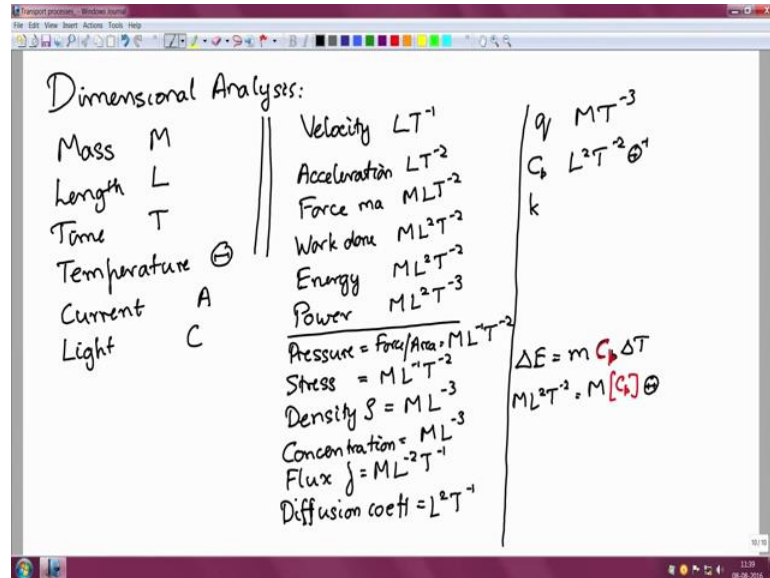 Transport processes_ - Windows Journal
File Edit View Insert Actions Tools Help
Dimensional Analysis:
Mass M
Length L
Time T
Temperature Θ
Current A
Light C
Velocity LT⁻¹
Acceleration LT⁻²
Force ma MLT⁻²
Work done ML²T⁻²
Energy ML²T⁻²
Power ML²T⁻³
Pressure = Force/Area = ML⁻¹T⁻²
Stress = ML⁻¹T⁻²
Density ρ = ML⁻³
Concentration = ML⁻³
Flux j = ML⁻²T⁻¹
Diffusion coeff = L²T⁻¹
q MT⁻³
Cₚ L²T⁻²Θ⁻¹
k
ΔE = m Cₚ ΔT
ML²T⁻² = M [Cₚ] Θ
10/10
11:39
08-08-2016